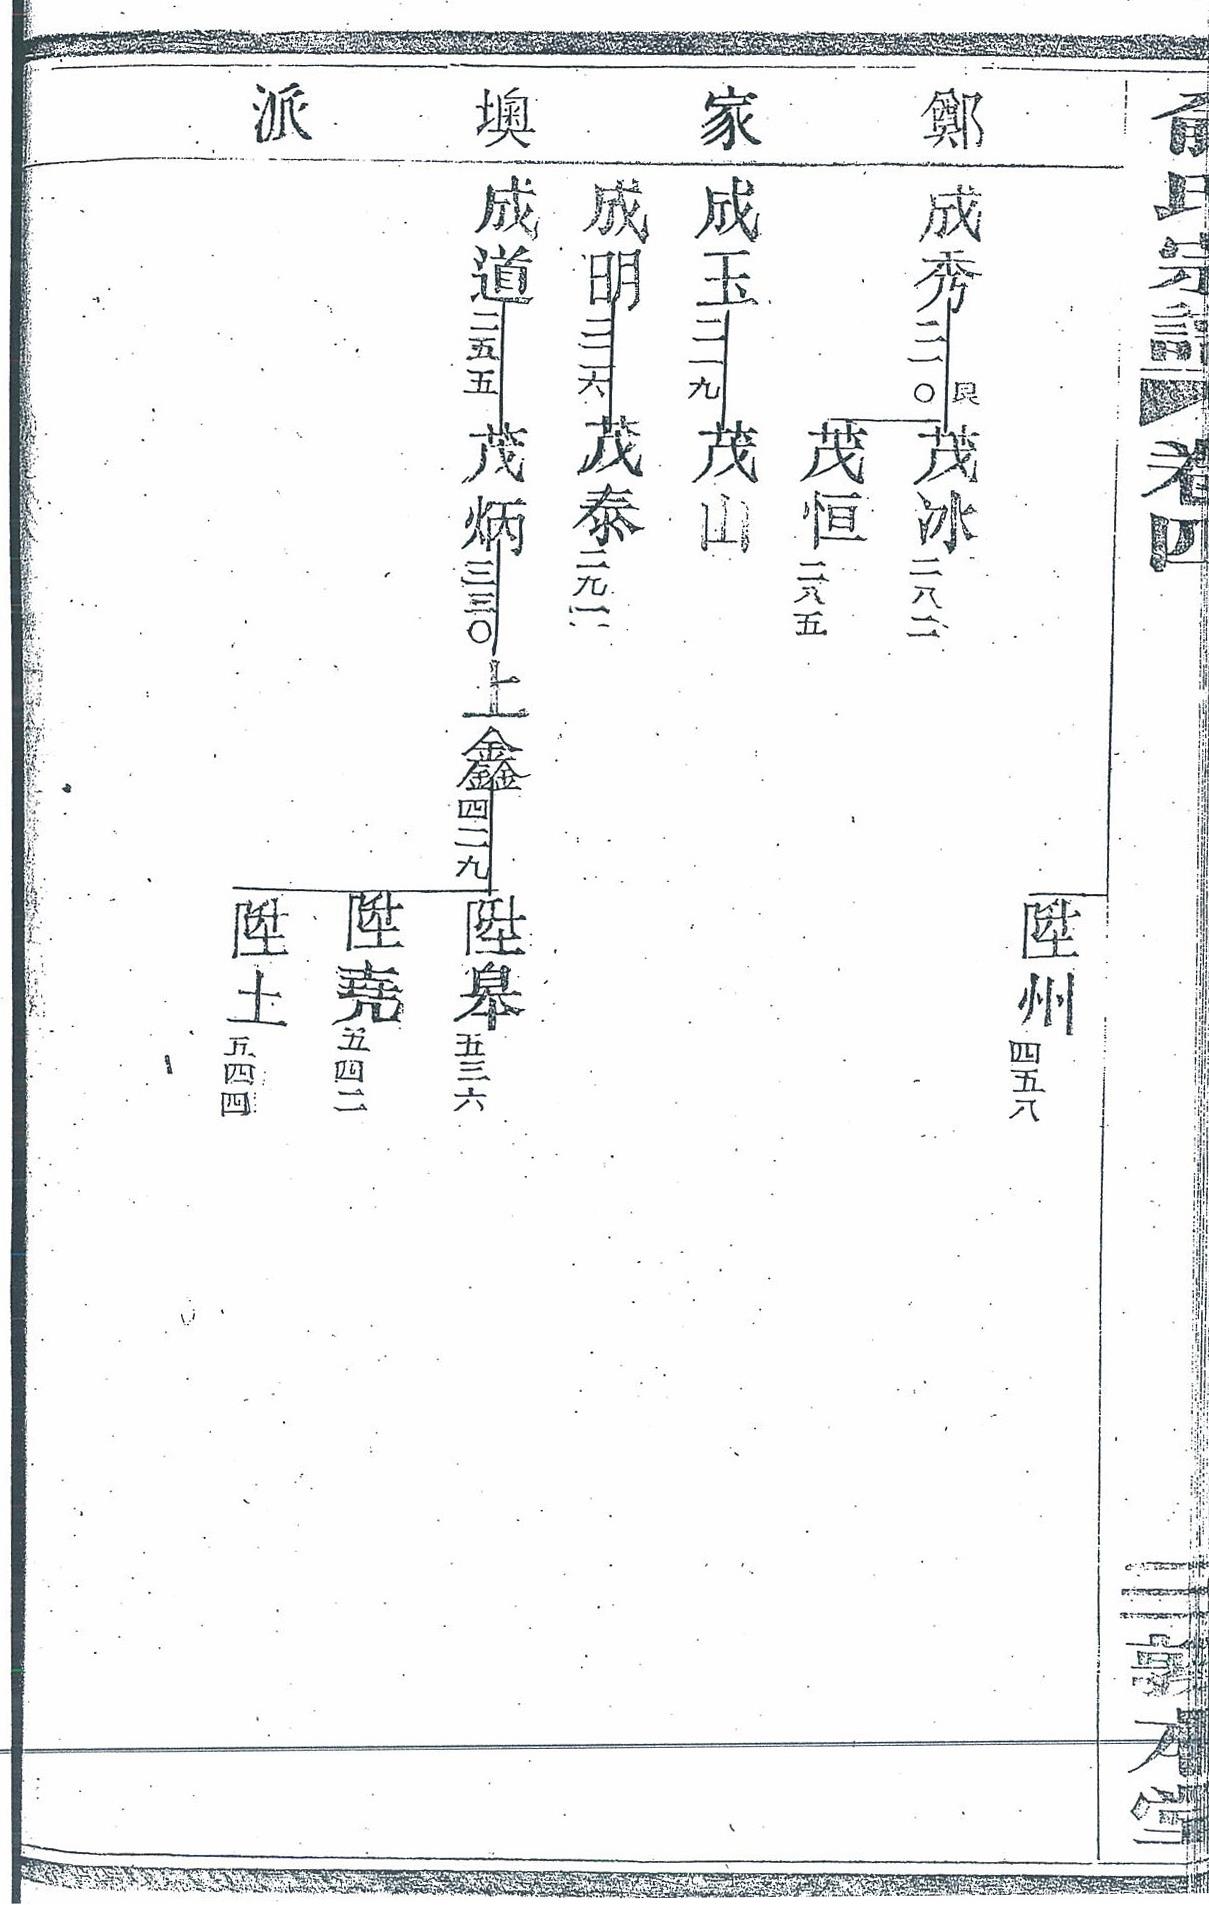 俞氏宗譜
卷四
三
敦本堂
鄭家墺派
陞州 四五八
成秀 二一〇
艮
茂冰 二八二
茂恒 二八五
成玉 二一九
茂山
成明 二二六
茂泰 二九一
成道 二五五
茂炳 三三〇
上鑫 四二九
陞皋 五三六
陞堯 五四二
陞土 五四四